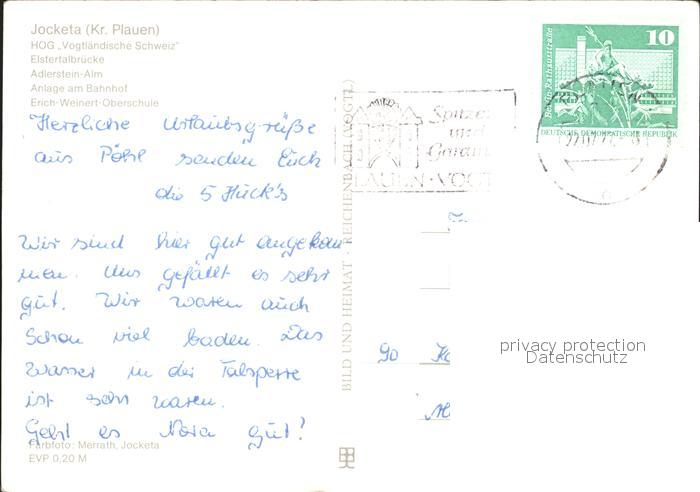 Jocketa (Kr. Plauen)
HOG „Vogtländische Schweiz"
Elstertalbrücke
Adlerstein-Alm
Anlage am Bahnhof
Erich-Weinert-Oberschule
Herzliche Urlaubsgrüße
aus Pöhl senden Euch
die 5 Huck's
Wir sind hier gut angekom
men. Uns gefällt es sehr
gut. Wir waren auch
Schon viel baden. Das
Wasser in der Talsperre
ist sehr warem.
Geht es Nora gut?
Farbfoto: Merrath, Jocketa
EVP 0,20 M
BILD UND HEIMAT · REICHENBACH (VOGTL)
Spitzen
und
Gardin
PLAUEN · VOGT
10
Berlin-Rathausstraße
DEUTSCHE DEMOKRATISCHE REPUBLIK
90
privacy protection
Datenschutz